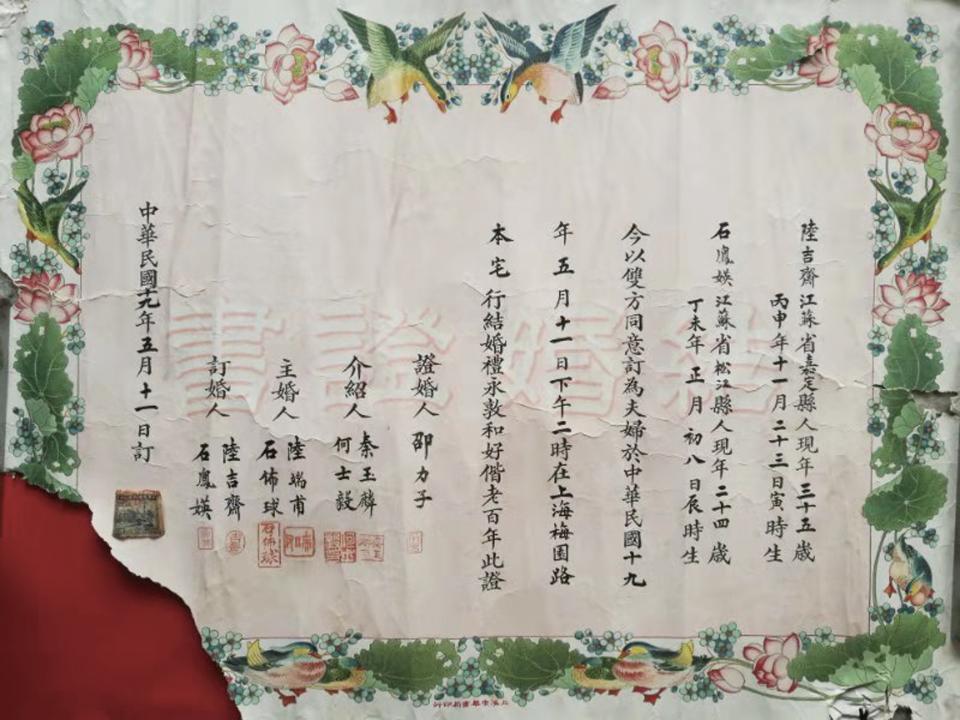 結婚證書
陸吉齋江蘇省嘉定縣人現年三十五歲
丙申年十一月二十三日寅時生
石鳳媖江蘇省松江縣人現年二十四歲
丁未年正月初八日辰時生
今以雙方同意訂為夫婦於中華民國十九
年五月十一日下午二時在上海梅園路
本宅行結婚禮永敦和好偕老百年此證
證婚人邵力子
介紹人秦玉麟
何士毅
主婚人陸端甫
石佈球
訂婚人陸吉齋
石鳳媖
中華民國十九年五月十一日訂